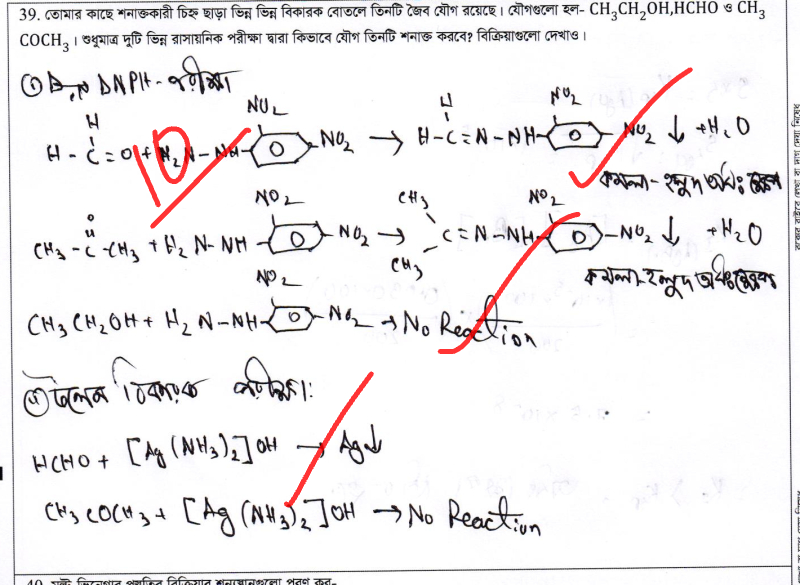 39. তোমার কাছে শনাক্তকারী চিহ্ন ছাড়া ভিন্ন ভিন্ন বিকারক বোতলে তিনটি জৈব যৌগ রয়েছে। যৌগগুলো হল- CH₃CH₂OH,HCHO ও CH₃
COCH₃। শুধুমাত্র দুটি ভিন্ন রাসায়নিক পরীক্ষা দ্বারা কিভাবে যৌগ তিনটি শনাক্ত করবে? বিক্রিয়াগুলো দেখাও।
① DNPH- পরীক্ষা
H NO₂ H NO₂
H - C = O + H₂N - NH NO₂ → H - C = N - NH NO₂ ↓ + H₂O
10
কমলা - হলুদ অধঃক্ষেপ
O NO₂ CH₃ NO₂
CH₃ - C - CH₃ + H₂N - NH NO₂ → C = N - NH NO₂ ↓ + H₂O
CH₃
কমলা - হলুদ অধঃক্ষেপ
NO₂
CH₃CH₂OH + H₂N - NH NO₂ → No Reaction
টলেন বিকারক পরীক্ষা:
HCHO + [Ag(NH₃)₂]OH → Ag↓
CH₃COCH₃ + [Ag(NH₃)₂]OH → No Reaction